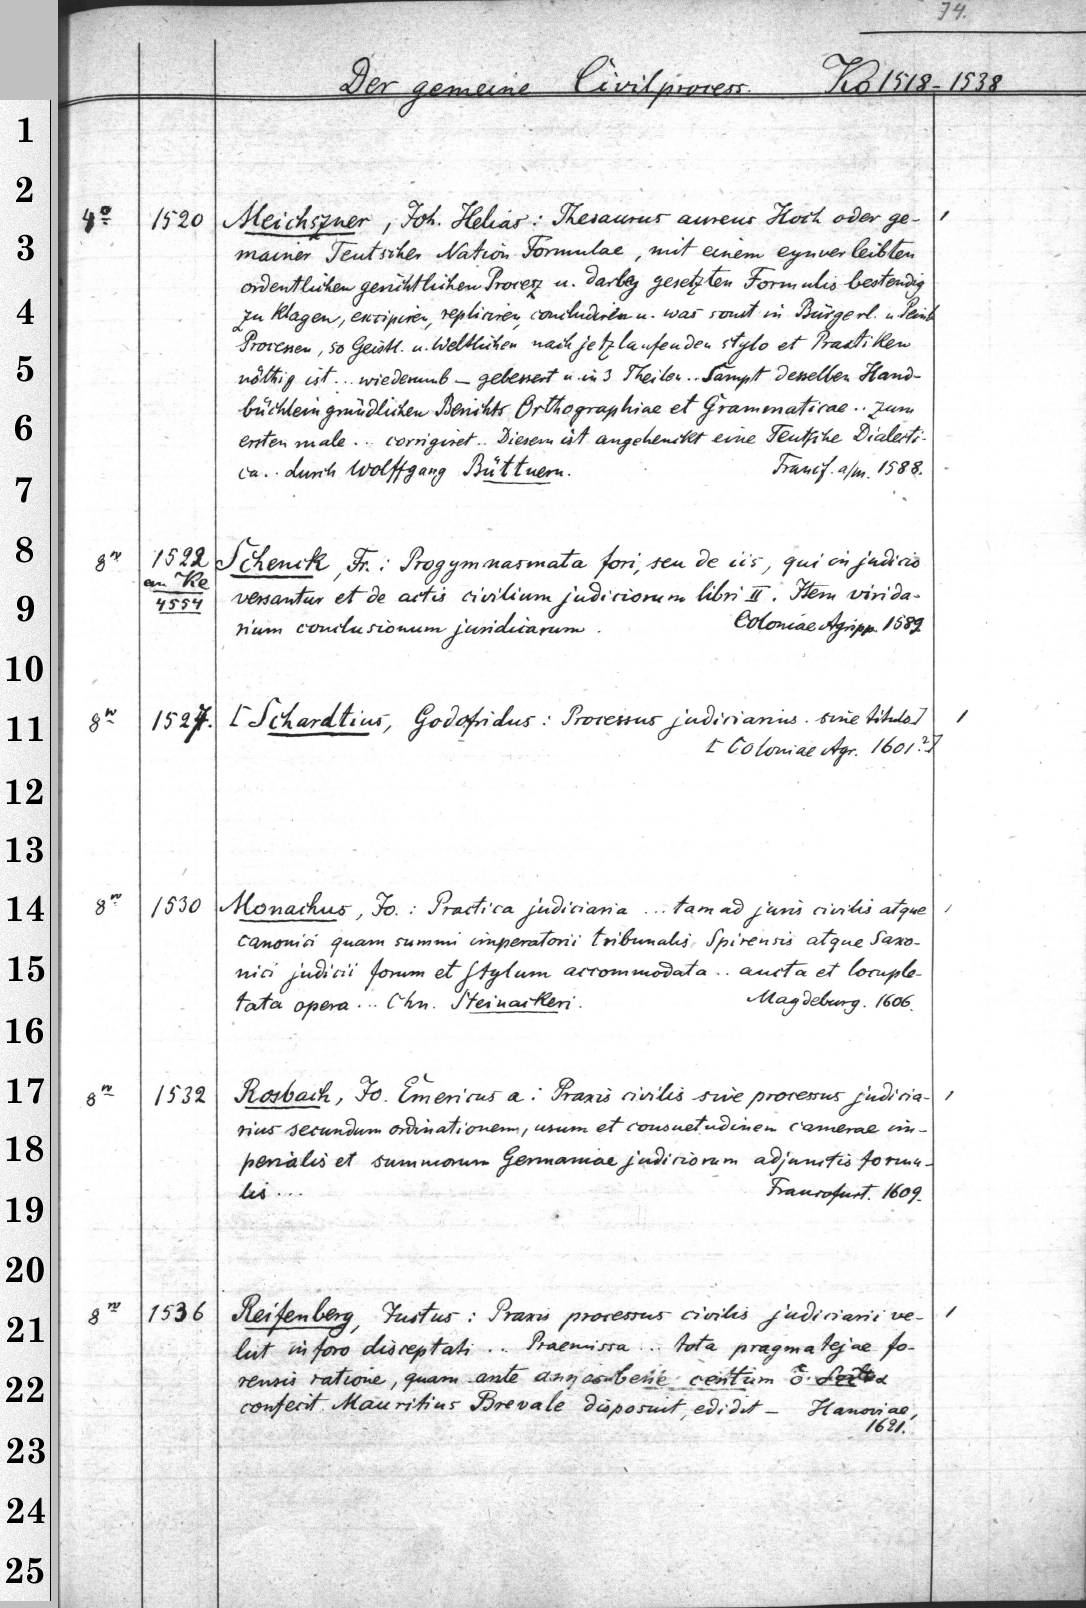 74.
Der gemeine Civilprocess. Ko 1518-1538
1
2
4º 1520 Meichszner, Joh. Helias: Thesaurus aureus Hoch oder ge-
3
mainer Teutscher Nation Formulae, mit einem eynverleibten
ordentlichen gerichtlichen Procesz u. darbey gesetzten Formulis bestendig
4
zu klagen, excipiren, repliciren, concludiren u. was sonst in Bürgerl. u. Peinl.
Processen, so Geistl. u. Weltlichen nach jetzlaufenden stylo et Practiken
5
nöthig ist ... wiederumb — gebessert u. in 3 Theilen .. Sampt desselben Hand-
büchlein gründlichen Berichts Orthographiae et Grammaticae .. zum
6
ersten male ... corrigiret .. Diesem ist angehenckt eine Teutsche Dialecti-
ca .. durch Wolffgang Büttnern. Francf. a/m. 1588.
7
8
8º 1522 Schenck, Fr.: Progymnasmata fori, seu de iis, qui in judicio
an Ke
4554
versantur et de actis civilium judiciorum libri II. Item virida-
9
rium conclusionum juridicarum. Coloniae Agripp. 1589
10
11
8º 1527. [Schardtius, Godofridus: Processus judiciarius. sine titulo]
[Coloniae Agr. 1601.?]
12
13
14
8º 1530 Monachus, Jo.: Practica judiciaria ... tam ad juris civilis atque
canonici quam summi imperatorii tribunalis Spirensis atque Saxo-
15
nici judicii forum et stylum accommodata .. aucta et locuple-
tata opera ... Chn. Steinackeri. Magdeburg. 1606.
16
17
8º 1532 Rosbach, Jo. Emericus a: Praxis civilis sive processus judicia-
rius secundum ordinationem, usum et consuetudinem camerae im-
18
perialis et summorum Germaniae judiciorum adjunctis formu-
lis ... Francofurt. 1609.
19
20
8º 1536 Reifenberg, Justus: Praxis processus civilis judiciarii ve-
21
lut in foro disceptati ... Praemissa ... tota pragmatejae fo-
rensis ratione, quam ante annos bene centum
22
confecit Mauritius Brevale disposuit, edidit — Hanoviae,
1621.
23
24
25